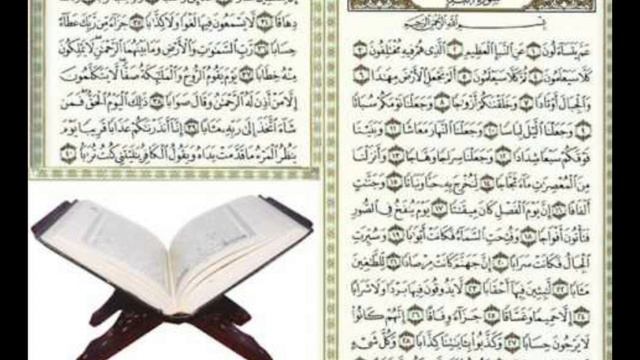 بِسْمِ اللَّهِ الرَّحْمَٰنِ الرَّحِيمِ
عَمَّ يَتَسَاءَلُونَ ١ عَنِ النَّبَإِ الْعَظِيمِ ٢ الَّذِي هُمْ فِيهِ مُخْتَلِفُونَ ٣
كَلَّا سَيَعْلَمُونَ ٤ ثُمَّ كَلَّا سَيَعْلَمُونَ ٥ أَلَمْ نَجْعَلِ الْأَرْضَ مِهَٰدًا ٦
وَالْجِبَالَ أَوْتَادًا ٧ وَخَلَقْنَٰكُمْ أَزْوَٰجًا ٨ وَجَعَلْنَا نَوْمَكُمْ سُبَاتًا
٩ وَجَعَلْنَا اللَّيْلَ لِبَاسًا ١٠ وَجَعَلْنَا النَّهَارَ مَعَاشًا ١١ وَبَنَيْنَا
فَوْقَكُمْ سَبْعًا شِدَادًا ١٢ وَجَعَلْنَا سِرَاجًا وَهَّاجًا ١٣ وَأَنزَلْنَا
مِنَ الْمُعْصِرَٰتِ مَاءً ثَجَّاجًا ١٤ لِنُخْرِجَ بِهِ حَبًّا وَنَبَاتًا ١٥ وَجَنَّٰتٍ
أَلْفَافًا ١٦ إِنَّ يَوْمَ الْفَصْلِ كَانَ مِيقَٰتًا ١٧ يَوْمَ يُنفَخُ فِي الصُّورِ
فَتَأْتُونَ أَفْوَاجًا ١٨ وَفُتِحَتِ السَّمَاءُ فَكَانَتْ أَبْوَٰبًا ١٩ وَسُيِّرَتِ
الْجِبَالُ فَكَانَتْ سَرَابًا ٢٠ إِنَّ جَهَنَّمَ كَانَتْ مِرْصَادًا ٢١ لِلطَّٰغِينَ
مَـَٔابًا ٢٢ لَٰبِثِينَ فِيهَا أَحْقَابًا ٢٣ لَا يَذُوقُونَ فِيهَا بَرْدًا وَلَا شَرَابًا
٢٤ إِلَّا حَمِيمًا وَغَسَّاقًا ٢٥ جَزَاءً وِفَاقًا ٢٦ إِنَّهُمْ كَانُوا
لَا يَرْجُونَ حِسَابًا ٢٧ وَكَذَّبُوا بِـَٔايَٰتِنَا كِذَّابًا ٢٨ وَكُلَّ شَيْءٍ
دِهَاقًا ٣٤ لَّا يَسْمَعُونَ فِيهَا لَغْوًا وَلَا كِذَّٰبًا ٣٥ جَزَاءً مِّن رَّبِّكَ عَطَاءً
حِسَابًا ٣٦ رَّبِّ السَّمَٰوَٰتِ وَالْأَرْضِ وَمَا بَيْنَهُمَا الرَّحْمَٰنِ لَا يَمْلِكُونَ
مِنْهُ خِطَابًا ٣٧ يَوْمَ يَقُومُ الرُّوحُ وَالْمَلَٰئِكَةُ صَفًّا لَّا يَتَكَلَّمُونَ
إِلَّا مَنْ أَذِنَ لَهُ الرَّحْمَٰنُ وَقَالَ صَوَابًا ٣٨ ذَٰلِكَ الْيَوْمُ الْحَقُّ فَمَن
شَاءَ اتَّخَذَ إِلَىٰ رَبِّهِ مَـَٔابًا ٣٩ إِنَّا أَنذَرْنَٰكُمْ عَذَابًا قَرِيبًا يَوْمَ
يَنظُرُ الْمَرْءُ مَا قَدَّمَتْ يَدَاهُ وَيَقُولُ الْكَافِرُ يَٰلَيْتَنِي كُنتُ تُرَٰبًا ٤٠